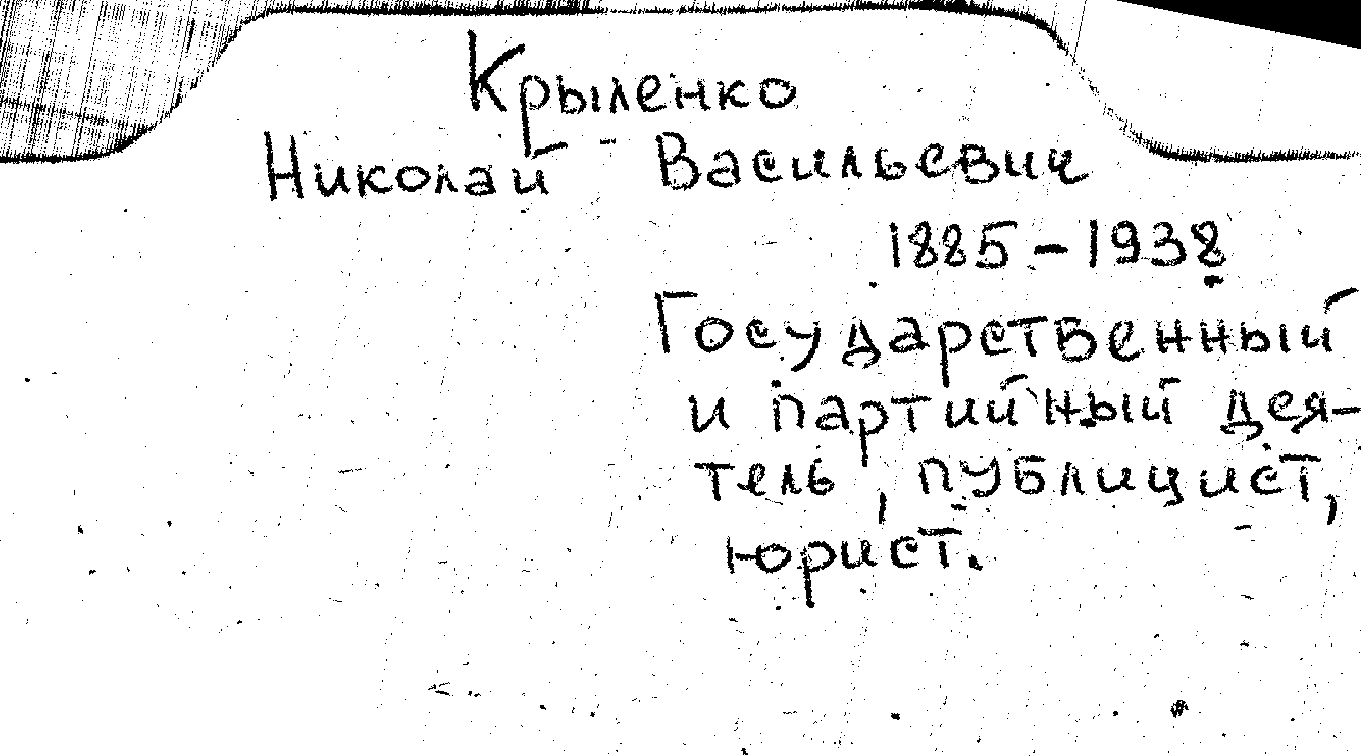 Крыленко
Николай Васильевич
1885-1938
Государственный
и партийный дея-
тель, публицист,
юрист.